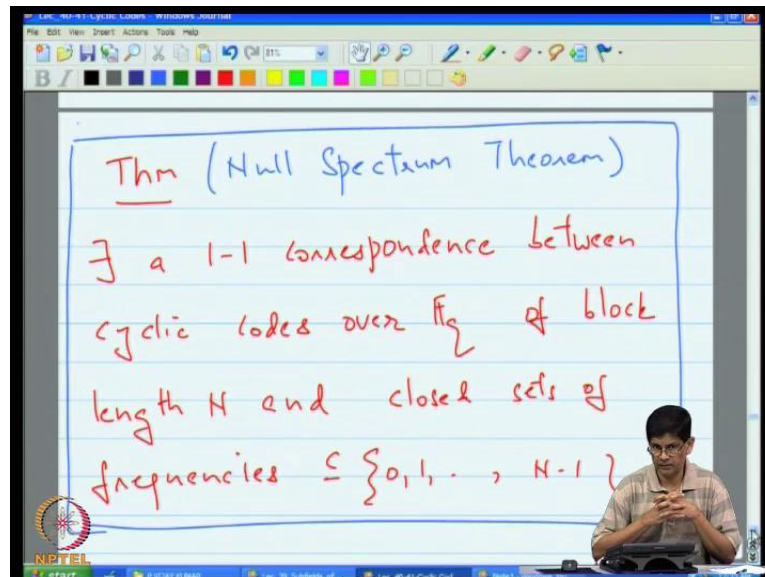 Lec_40-41-Cyclic Codes - Windows Journal
File Edit View Insert Actions Tools Help
81%
B I
Thm (Null Spectrum Theorem)
∃ a 1-1 correspondence between
cyclic codes over F_q of block
length N and closed sets of
frequencies ⊆ {0, 1, . , N-1}
NPTEL
start